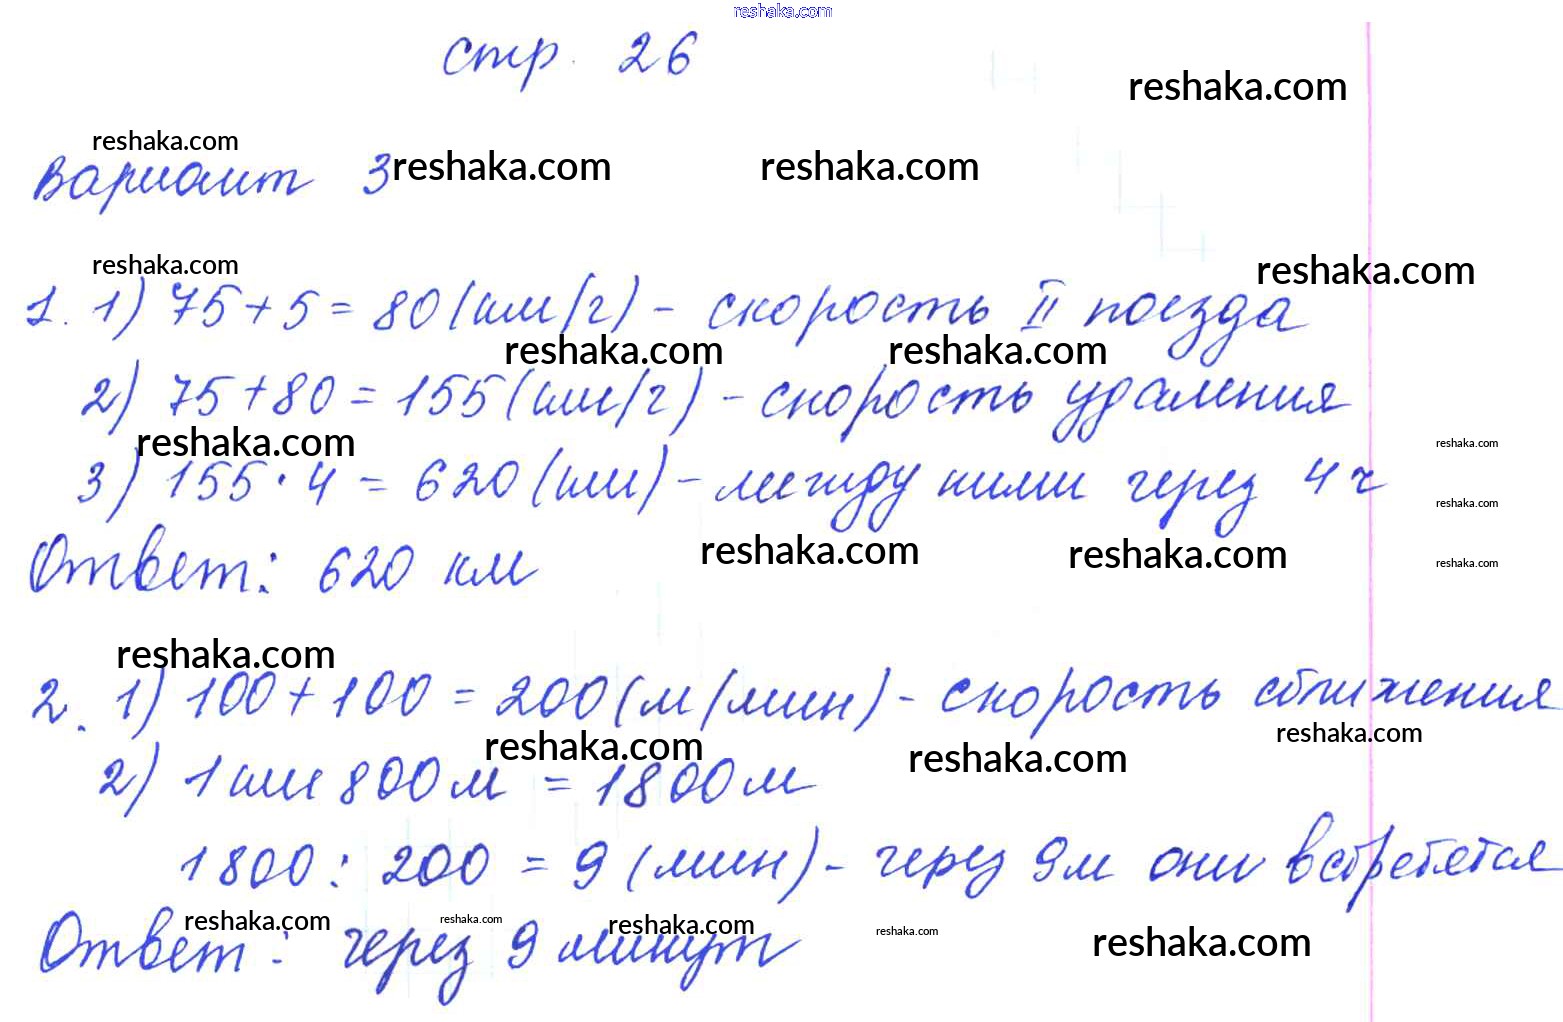 reshaka.com
стр. 26
reshaka.com
reshaka.com
вариант 3 reshaka.com reshaka.com
reshaka.com reshaka.com
1. 1) 75 + 5 = 80 (км/ч) - скорость II поезда
reshaka.com reshaka.com
2) 75 + 80 = 155 (км/ч) - скорость удаления
reshaka.com reshaka.com
3) 155 · 4 = 620 (км) - между ними через 4 ч
reshaka.com
Ответ: 620 км reshaka.com reshaka.com reshaka.com
reshaka.com
2. 1) 100 + 100 = 200 (м/мин) - скорость сближения
reshaka.com reshaka.com reshaka.com
2) 1 км 800 м = 1800 м
1800 : 200 = 9 (мин) - через 9 м они встретятся
reshaka.com reshaka.com reshaka.com reshaka.com reshaka.com
Ответ: через 9 минут